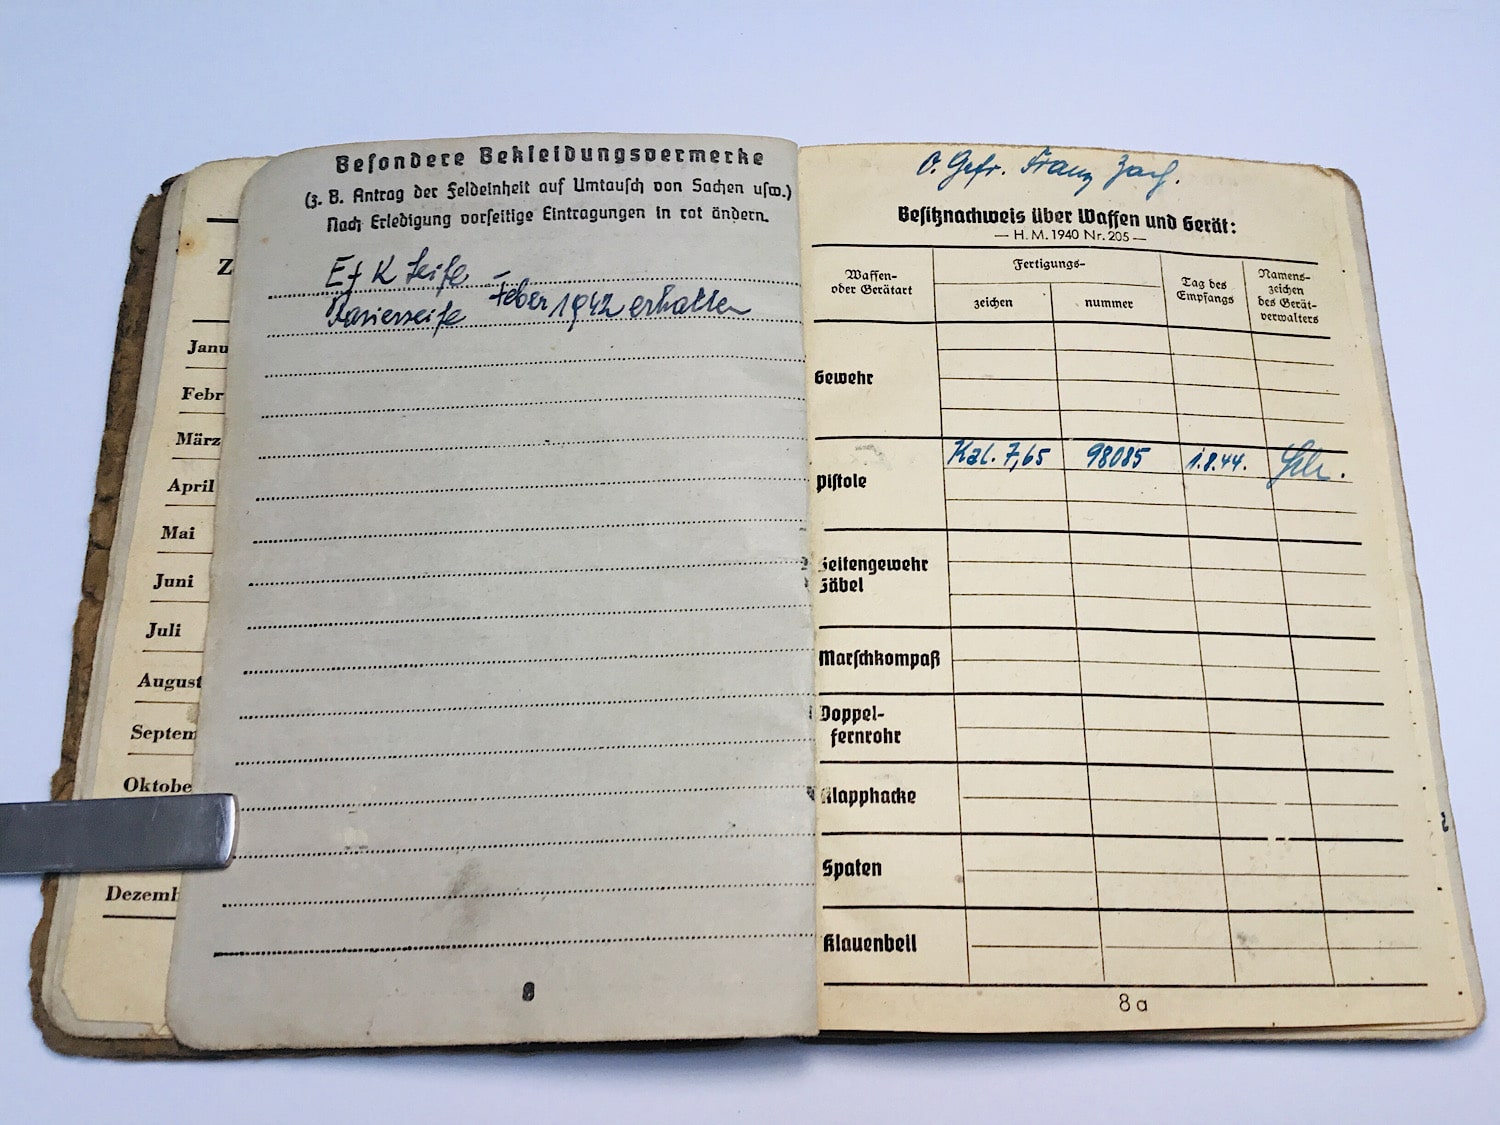 Z
Janu
Febr
März
April
Mai
Juni
Juli
August
Septem
Oktobe
Dezemb
Besondere Bekleidungsvermerke
(z. B. Antrag der Feldeinheit auf Umtausch von Sachen usw.)
Nach Erledigung vorseitige Eintragungen in rot ändern.
Ef K Seife
Rasierseife Feber 1942 erhalten
8
O. Gefr. Franz
Besitznachweis über Waffen und Gerät:
— H. M. 1940 Nr. 205 —
Waffen-
oder Gerätart
Fertigungs-
zeichen
nummer
Tag des
Empfangs
Namens-
zeichen
des Gerät-
verwalters
Gewehr
Pistole
Kal. 7,65 98085 1.8.44.
Seitengewehr
Säbel
Marschkompaß
Doppel-
fernrohr
Klapphacke
Spaten
Klauenbeil
8a